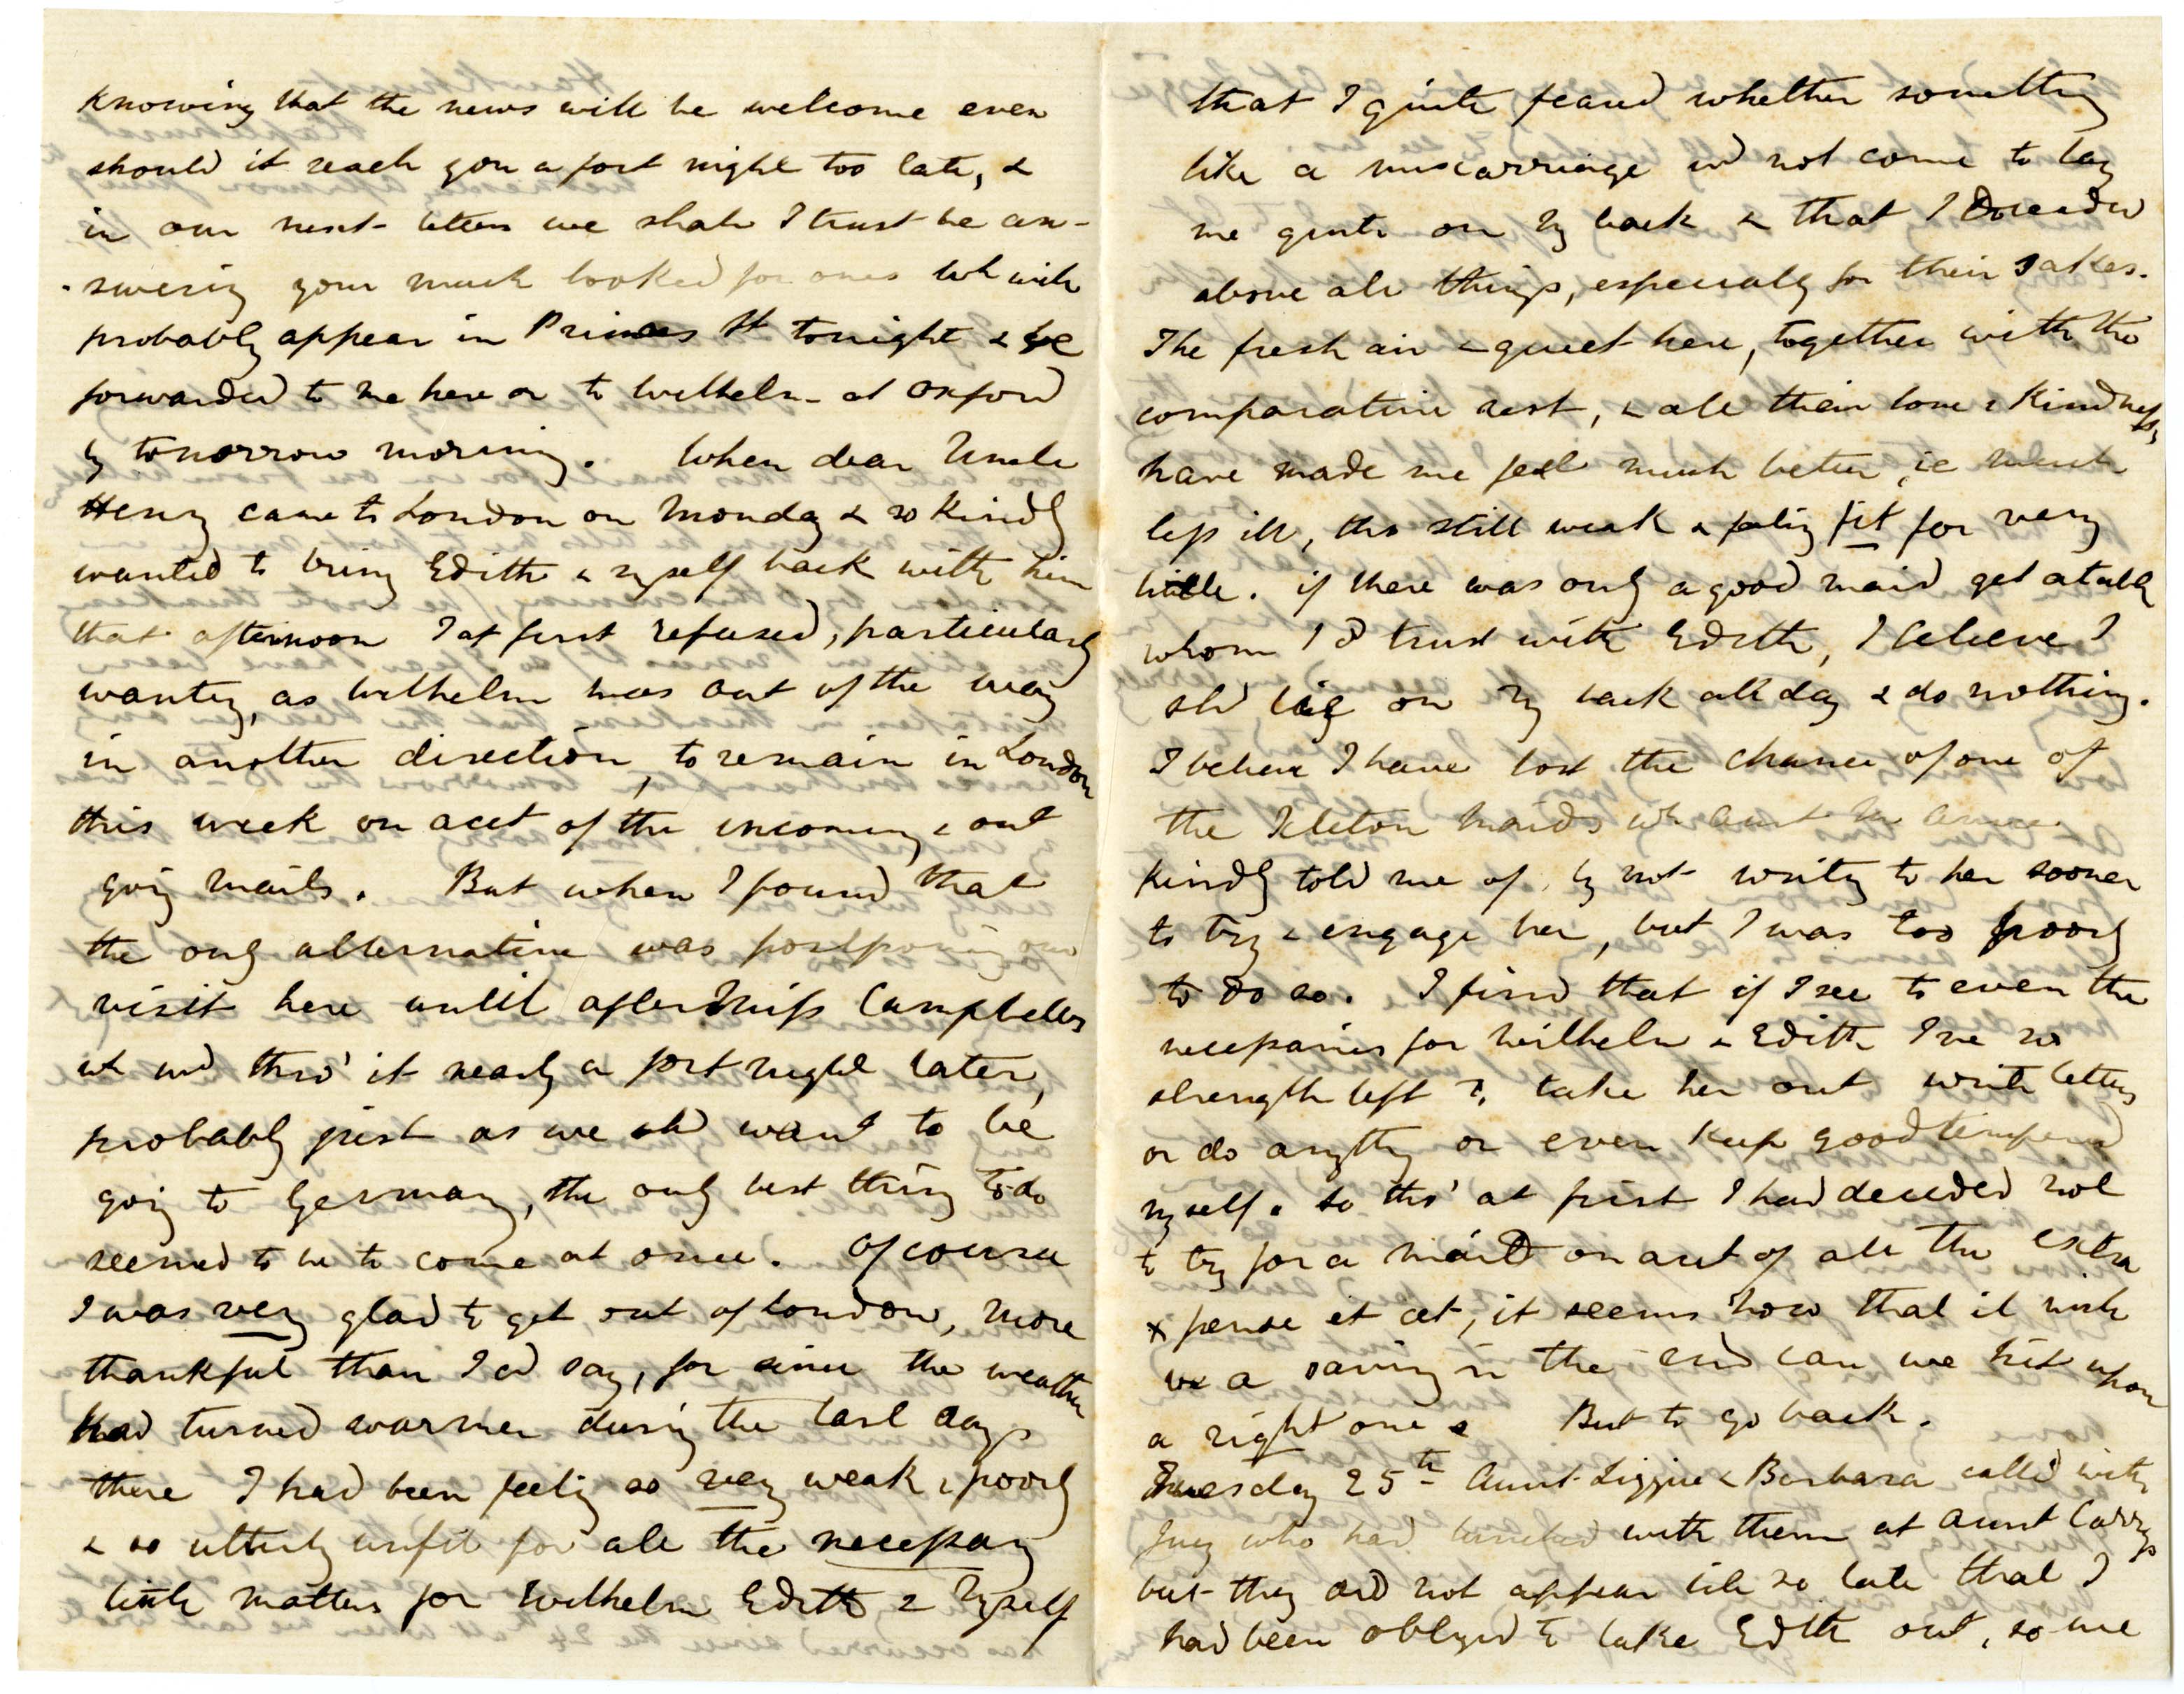 Knowing that the news will be welcome even
should it reach you a fort night too late, &
in our next letters we shall I trust be an-
-swering your much looked for ones wh will
probably appear in Princes St tonight & be
forwarded to me here or to Wilhelm at Oxford
by tomorrow morning. When dear Uncle
Henry came to London on Monday & so kindly
wanted to bring Edith & myself back with him
that afternoon I at first refused, particularly
wanting, as Wilhelm was out of the way
in another direction, to remain in London
this week on acct of the incoming & out
going mails. But when I found that
the only alternative was postponing our
visit here until after Miss Campbells
wh wd thro' it nearly a fort night later,
probably just as we shd want to be
going to Germany, the only best thing to do
seemed to be to come at once. Of course
I was very glad to get out of London, more
thankful than I cd say, for since the weather
had turned warmer during the last days
there I had been feeling so very weak & poorly
& so utterly unfit for all the necessary
little matters for Wilhelm Edith & myself
that I quite feared whether something
like a miscarriage wd not come to lay
me quite on my back & that I dreaded
above all things, especially for their sakes.
The fresh air & quiet here, together with the
comparative rest, & all their love & kindness,
have made me feel much better, ie much
less ill, tho still weak & feeling fit for very
little. if there was only a good maid get atable
whom I cd trust with Edith, I believe I
shd lie on my back all day & do nothing.
I believe I have lost the chance of one of
the Ilkton maids wh Aunt
kindly told me of, by not writing to her sooner
to try & engage her, but I was too poorly
to do so. I find that if I see to even the
necessaries for Wilhelm & Edith I've no
strength left to take her out write letters
or do anything or even keep good tempered
myself. so tho' at first I had decided not
to try for a maid on acct of all the extra
xpense et cet, it seems now that it will
be a saving in the end can we hit upon
a right one. But to go back.
Tuesday 25th Aunt Lizzie & Barbara called with
Guy who had lunched with them at Aunt Carry's
but they did not appear till so late that I
had been obliged to take Edith out, so we